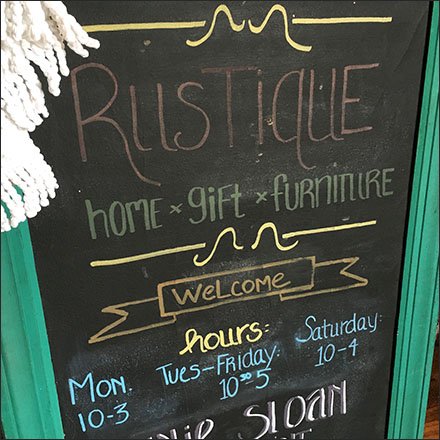 RUSTIQUE
home × gift × furniture
Welcome
hours:
Mon. Tues-Friday: Saturday:
10-3 10³⁰-5 10-4
SLOAN